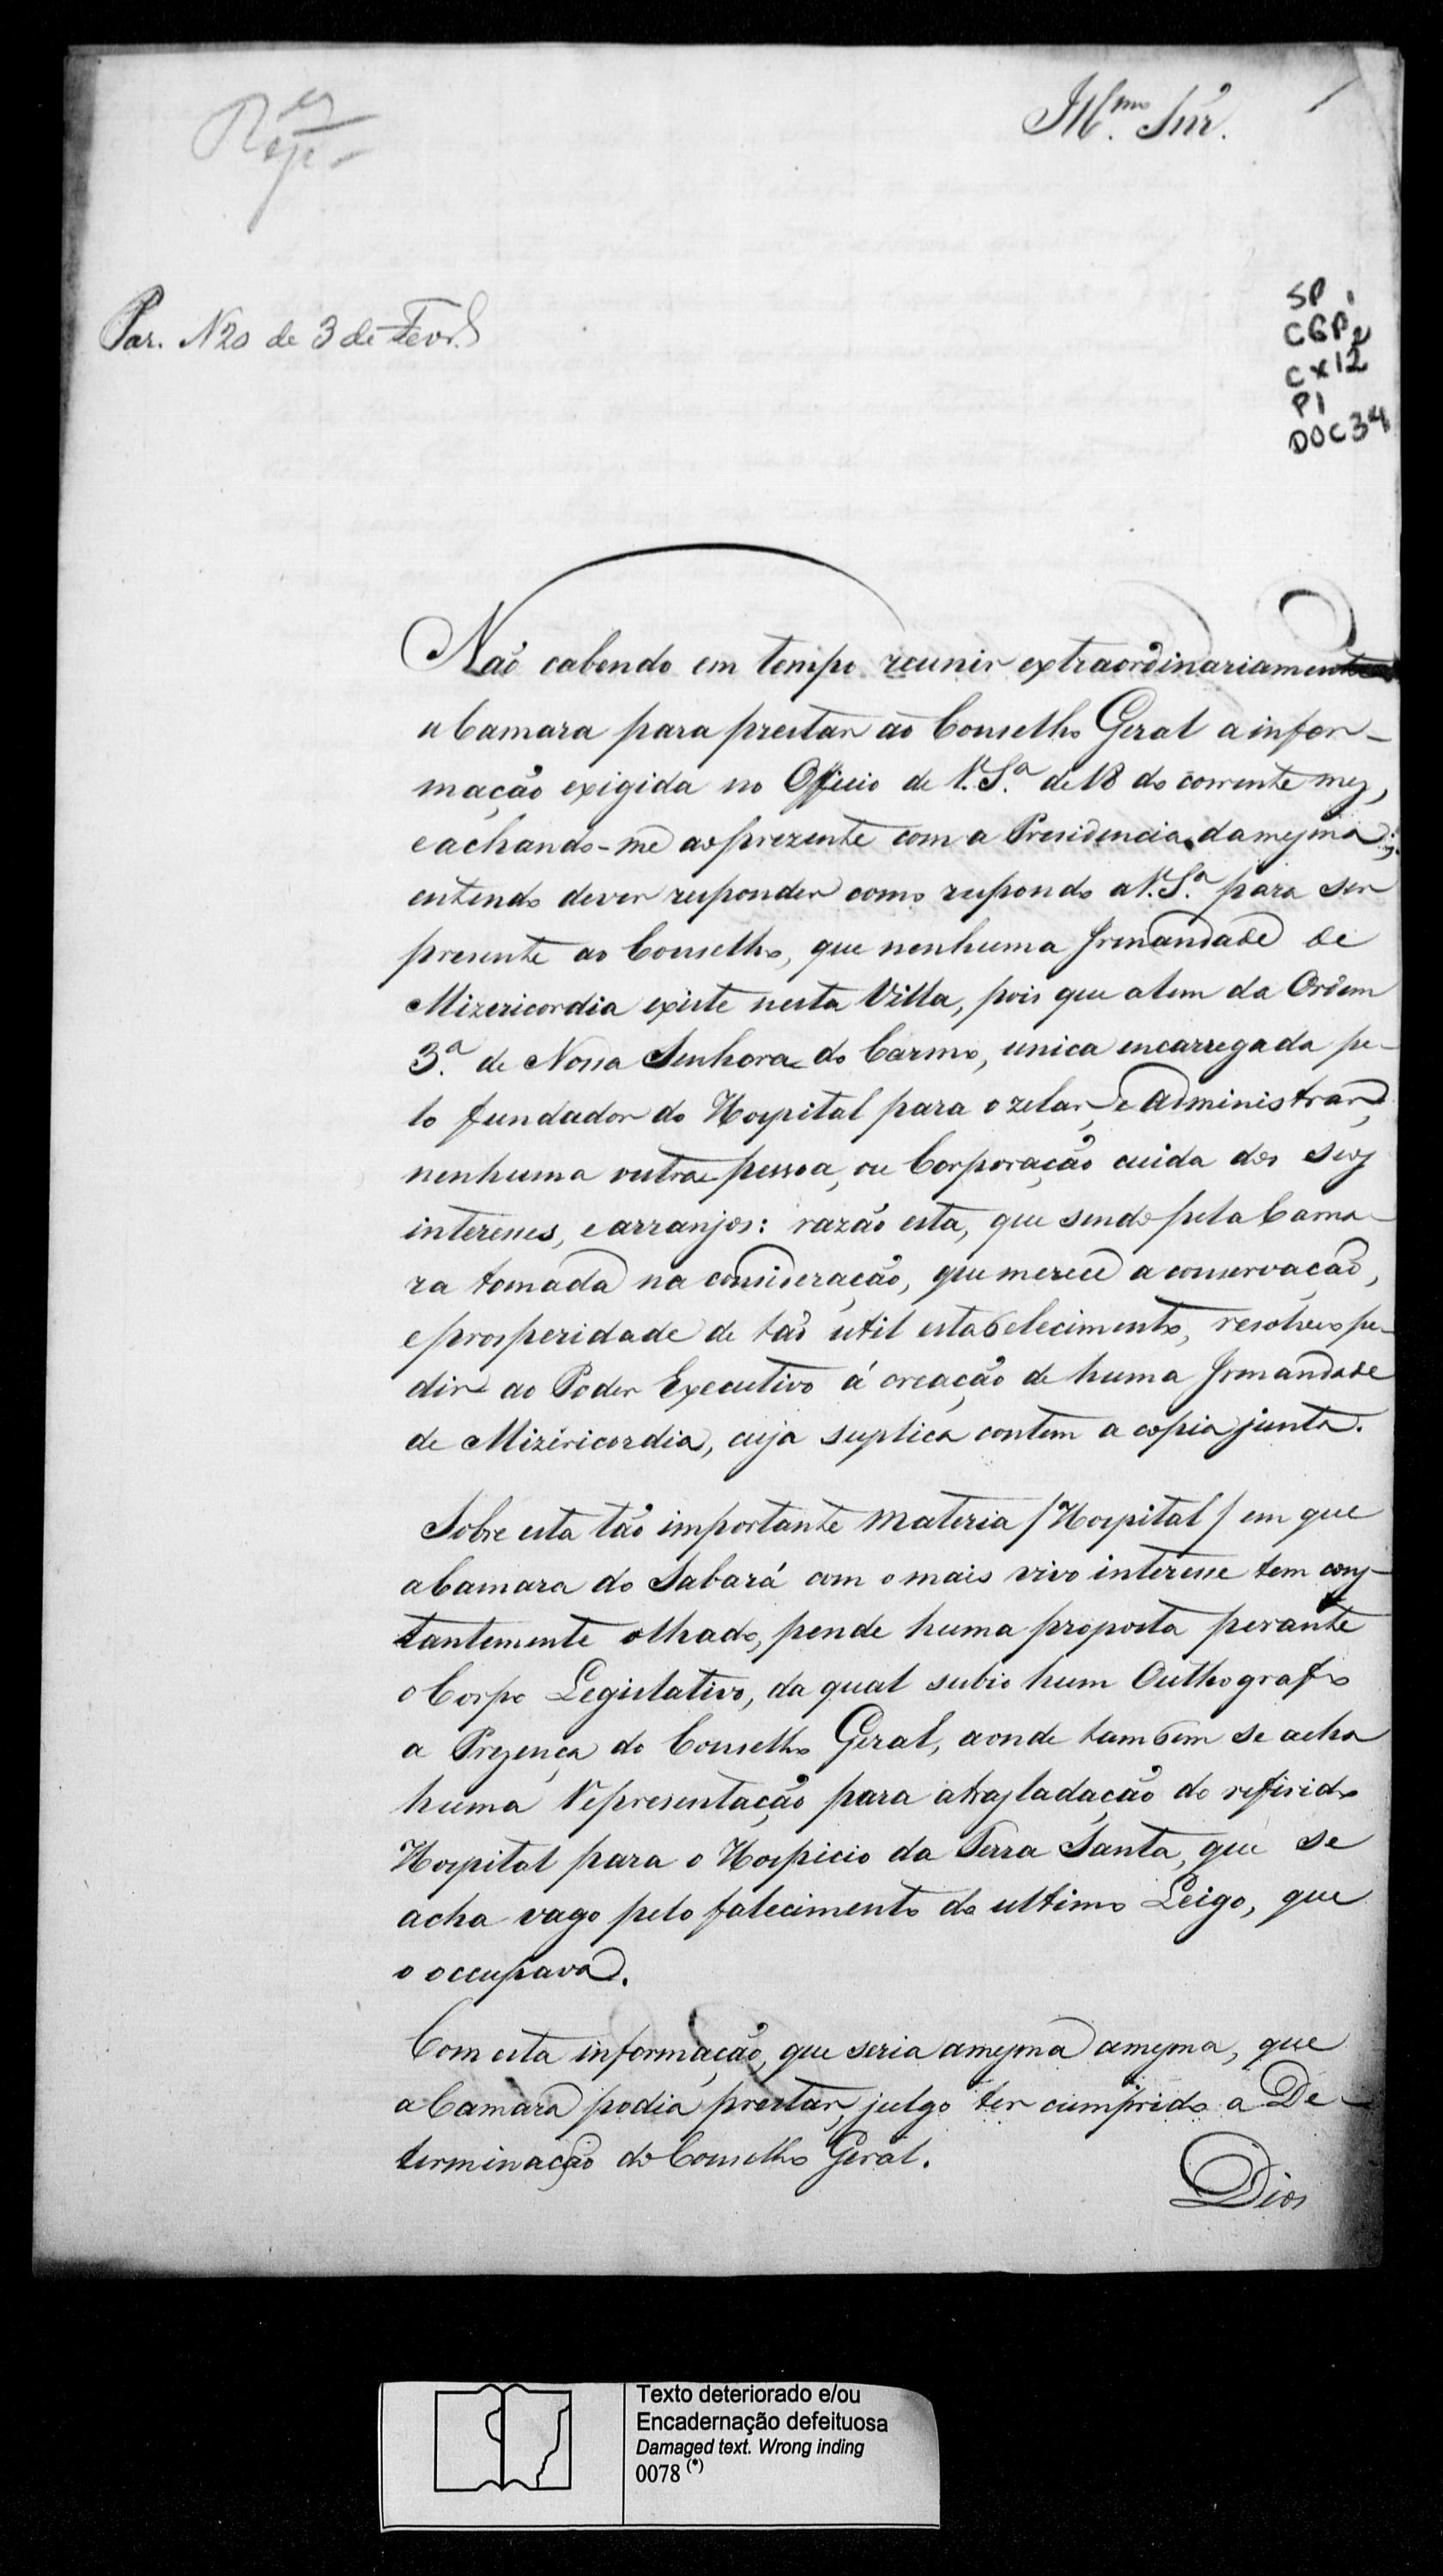 Ill.mo Snr.
1
Par. N 20 de 3 de Fevr.
SP 1
CGP 2
CX 12
P1
DOC 34
Não cabendo em tempo reunir extraordinariamente
a Camara para prestar ao Conselho Geral a infor-
mação exigida no Officio de V. S.ª de 18 do corrente mez,
e achando-me ao prezente com a Presidencia da mesma;
entendo dever responder como respondo a V. S.ª para ser
presente ao Conselho, que nenhuma Irmandade de
Mizericordia existe nesta Villa, pois que alem da Ordem
3.ª de Nossa Senhora do Carmo, unica encarregada pe-
lo fundador do Hospital para o zelar, e administrar,
nenhuma outra pessoa, ou Corporação cuida dos seos
interesses, e arranjos: razão esta, que sendo pela Cama-
ra tomada na consideração, que merece a conservação,
e prosperidade de tão util estabelecimento, resolveo pe-
dir ao Poder Executivo á creação de huma Irmandade
de Mizericordia, cuja suplica contem a copia junta.
Sobre esta tão importante materia / Hospital / em que
a Camara do Sabará com o mais vivo interesse tem cons-
tantemente olhado, pende huma proposta perante
o Corpo Legislativo, da qual subio hum Outhografo
a Prezença do Conselho Geral, aonde tambem se acha
huma Representação para a trasladação do referido
Hospital para o Hospicio da Terra Santa, que se
acha vago pelo falecimento do ultimo Leigo, que
o occupava.
Com esta informação, que seria a mesma a mesma, que
a Camara podia prestar, julgo ter cumprido a De-
terminação do Conselho Geral.
Dios
Texto deteriorado e/ou
Encadernação defeituosa
Damaged text. Wrong inding
0078 (*)